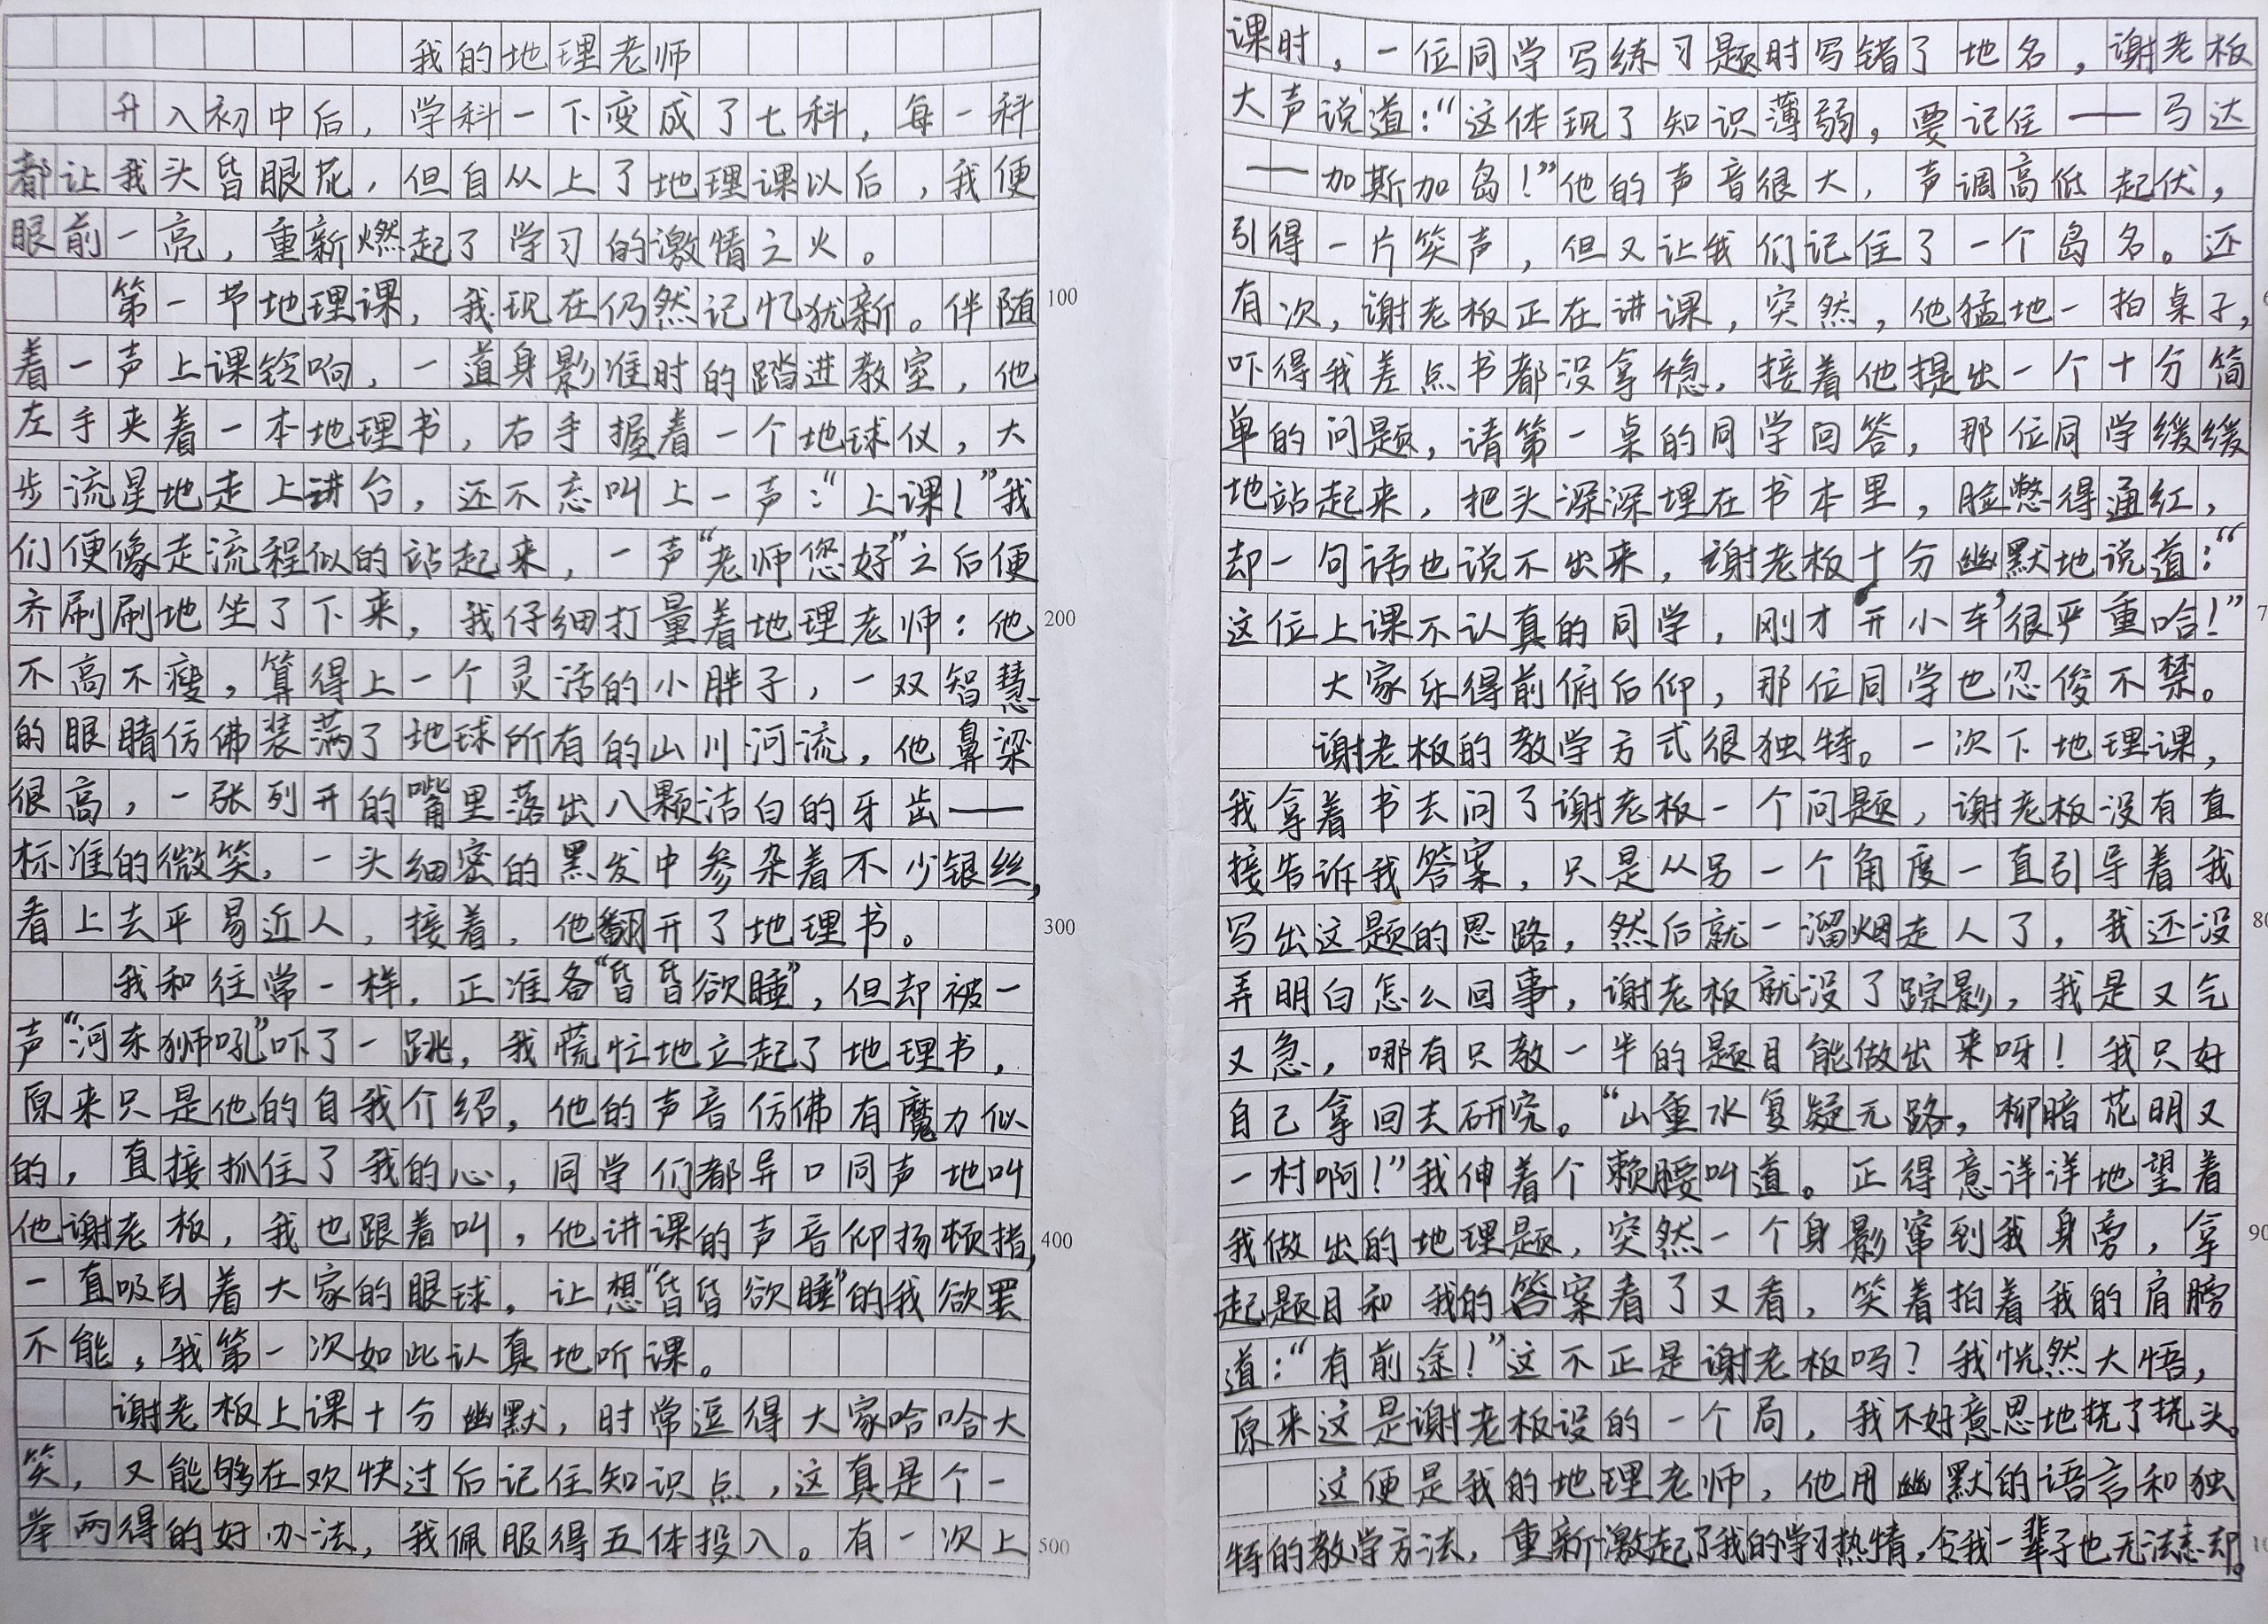 我的地理老师
升入初中后，学科一下变成了七科，每一科
都让我头昏眼花，但自从上了地理课以后，我便
眼前一亮，重新燃起了学习的激情之火。
第一节地理课，我现在仍然记忆犹新。伴随
100
着一声上课铃响，一道身影准时的踏进教室，他
左手夹着一本地理书，右手握着一个地球仪，大
步流星地走上讲台，还不忘叫上一声：“上课！”我
们便像走流程似的站起来，一声“老师您好”之后便
齐刷刷地坐了下来，我仔细打量着地理老师：他
200
不高不瘦，算得上一个灵活的小胖子，一双智慧
的眼睛仿佛装满了地球所有的山川河流，他鼻梁
很高，一张列开的嘴里落出八颗洁白的牙齿——
标准的微笑，一头细密的黑发中参杂着不少银丝，
看上去平易近人，接着，他翻开了地理书。
300
我和往常一样，正准备“昏昏欲睡”，但却被一
声“河东狮吼”吓了一跳，我慌忙地立起了地理书，
原来只是他的自我介绍，他的声音仿佛有魔力似
的，直接抓住了我的心，同学们都异口同声地叫
他谢老板，我也跟着叫，他讲课的声音仰扬顿措，
400
一直吸引着大家的眼球，让想“昏昏欲睡”的我欲罢
不能，我第一次如此认真地听课。
谢老板上课十分幽默，时常逗得大家哈哈大
笑，又能够在欢快过后记住知识点，这真是个一
举两得的好办法，我佩服得五体投入。有一次上
500
课时，一位同学写练习题时写错了地名，谢老板
大声说道：“这体现了知识薄弱，要记住——马达
——加斯加岛！”他的声音很大，声调高低起伏，
引得一片笑声，但又让我们记住了一个岛名。还
有次，谢老板正在讲课，突然，他猛地一拍桌子，
吓得我差点书都没拿稳，接着他提出一个十分简
单的问题，请第一桌的同学回答，那位同学缓缓
地站起来，把头深深埋在书本里，脸憋得通红，
却一句话也说不出来，谢老板十分幽默地说道：“
这位上课不认真的同学，刚才‘开小车’很严重哈！”
大家乐得前俯后仰，那位同学也忍俊不禁。
谢老板的教学方式很独特。一次下地理课，
我拿着书去问了谢老板一个问题，谢老板没有直
接告诉我答案，只是从另一个角度一直引导着我
写出这题的思路，然后就一溜烟走人了，我还没
弄明白怎么回事，谢老板就没了踪影，我是又气
又急，哪有只教一半的题目能做出来呀！我只好
自己拿回去研究。“山重水复疑无路，柳暗花明又
一村啊！”我伸着个赖腰叫道。正得意洋洋地望着
我做出的地理题，突然一个身影窜到我身旁，拿
起题目和我的答案看了又看，笑着拍着我的肩膀
道：“有前途！”这不正是谢老板吗？我恍然大悟，
原来这是谢老板设的一个局，我不好意思地挠了挠头。
这便是我的地理老师，他用幽默的语言和独
特的教学方法，重新激起了我的学习热情，令我一辈子也无法忘却。